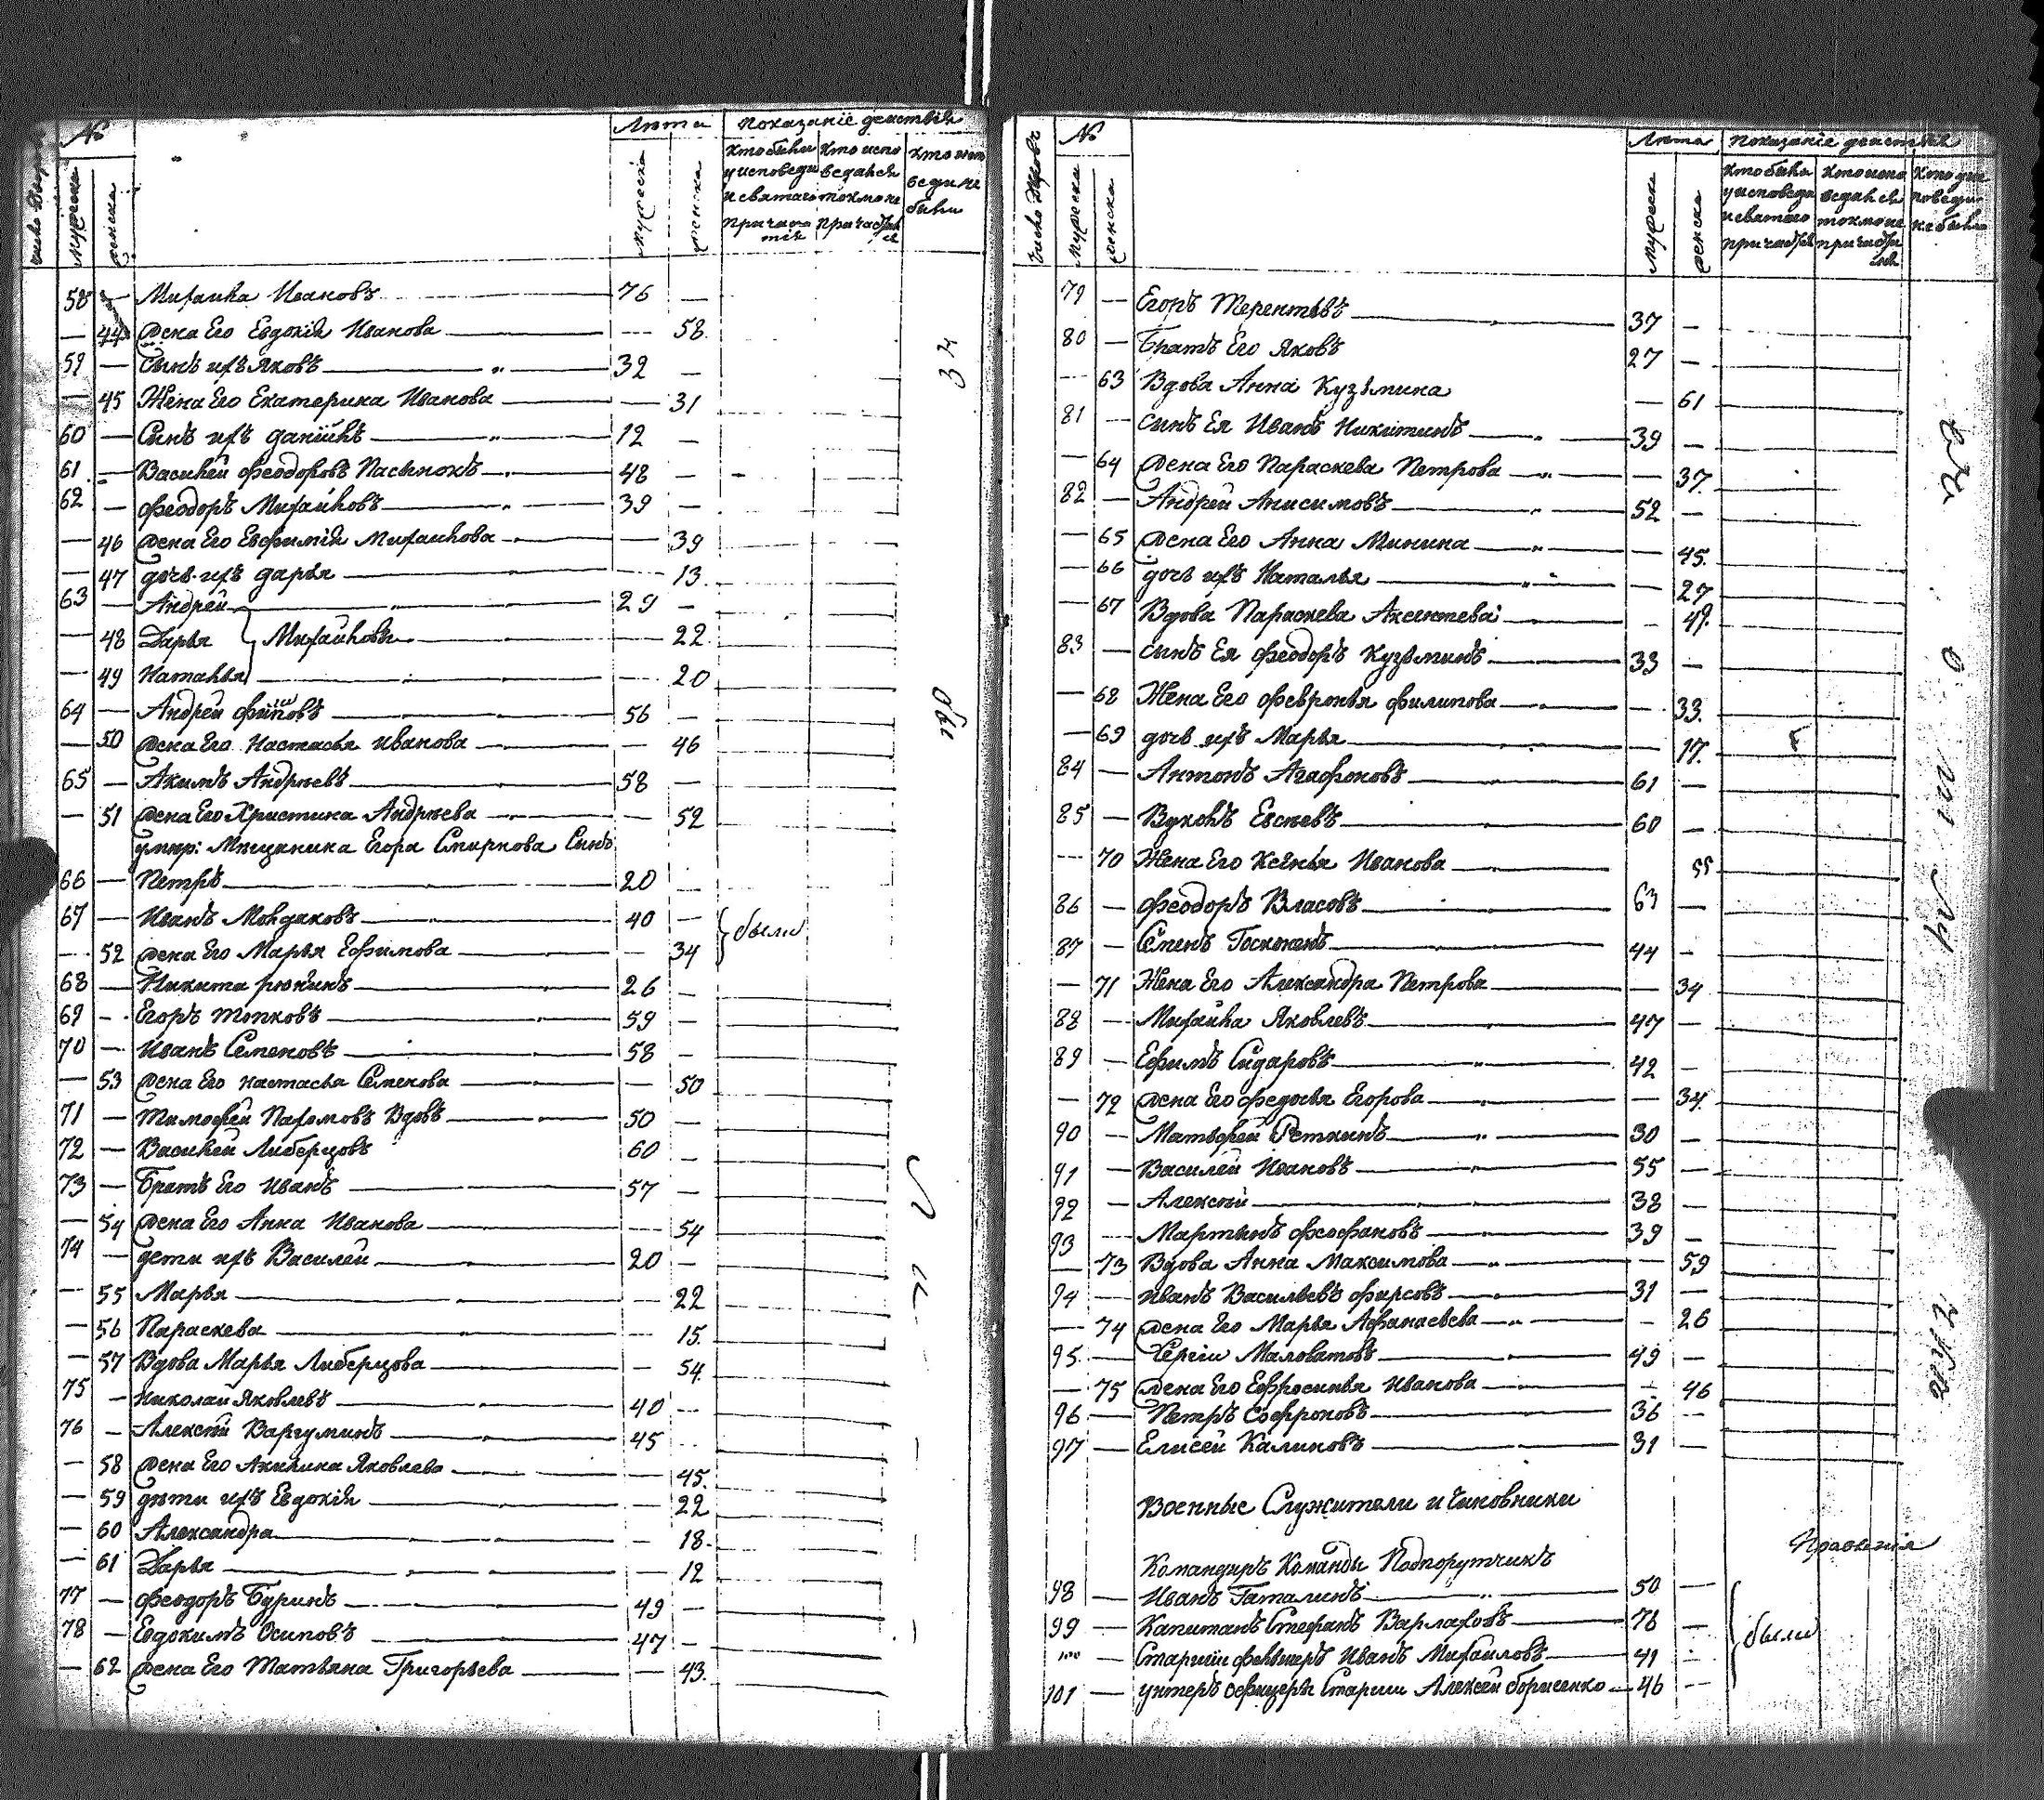 № Лѣта Показаніе действія
мужеска женска мужескія женска
кто были у исповеди и святаго причастія
кто исповедался токмо не причастился
58 — Михаила Ивановъ 76 —
— 44 жена Его Евдокія Иванова — 58
59 — Сынъ ихъ Яковъ 32 —
— 45 Жена Его Екатерина Иванова — 31
60 — Сынъ ихъ Данійлъ 12 —
61 — Василей Феодоровъ Пасынокъ 48 —
62 — Феодоръ Михайловъ 39 —
— 46 жена Его Евфимія Михаилова — 39
— 47 дочь ихъ дарья — 13
63 — Андрей 29 —
— 48 Дарья } Михайловы — 22
— 49 Наталья — 20
64 — Андрей Филиповъ 56 —
— 50 жена Его Настасья Иванова — 46
65 — Акимъ Андрѣевъ 58 —
— 51 жена Его Христина Андрѣева — 52
умер: Мещанина Егора Смирнова Сынъ
66 — Петръ 20 —
67 — Иванъ Молдаковъ 40 — } были
— 52 жена Его Марья Ефимова — 34
68 — Никита рюнинъ 26 —
69 — Егоръ Топковъ 59 —
70 — Иванъ Семеновъ 58 —
— 53 жена Его настасья Семенова — 50
71 — Тимофей Пахомовъ Вдовъ 50 —
72 — Василей Либерцовъ 60 —
73 — Братъ Его Иванъ 57 —
— 54 жена Его Анна Иванова — 54
74 — дети ихъ Василей 20 —
— 55 Марья — 22
— 56 Параскева — 15
— 57 Вдова Марья Либерцова — 54
75 — Николай Яковлевъ 40 —
76 — Алексей Варгуминъ 45 —
— 58 жена Его Акилина Яковлева — 45
— 59 дѣти ихъ Евдокія — 22
— 60 Александра — 18
— 61 Дарья — 12
77 — Феодоръ Буринъ 49 —
78 — Евдокимъ Осиповъ 47 —
— 62 жена Его Татьяна Григорьева — 43
№ Лѣта Показаніе действія
мужеска женска мужеска женска
кто были у исповеди и святаго причастія
кто исповедался токмо не причастился
79 — Егоръ Терентьвъ 37 —
80 — Братъ Его Яковъ 27 —
— 63 Вдова Анна Кузьмина — 61
81 — сынъ Ея Иванъ Никитинъ 39 —
— 64 жена Его Параскева Петрова — 37
82 — Андрей Анисимовъ 52 —
— 65 жена Его Анна Минина — 45
— 66 дочь ихъ Наталья — 27
— 67 Вдова Параскева Аксентева — 49
83 — сынъ Ея Феодоръ Кузьминъ 33 —
— 68 Жена Его Февронья Филипова — 33
— 69 дочь ихъ Марья — 17
84 — Антонъ Агафоновъ 61 —
85 — Вуколъ Евсѣевъ 60 —
— 70 Жена Его Ксенья Иванова 55
86 — Феодоръ Власовъ 63 —
87 — Семенъ Госконенъ 44 —
— 71 Жена Его Александра Петрова — 34
88 — Михайла Яковлевъ 47 —
89 — Ефимъ Сидаровъ 42 —
— 72 жена Его Федосья Егорова — 34
90 — Матвѣей Реткинъ 30 —
91 — Василей Ивановъ 55 —
92 — Алексѣй 38 —
93 — Мартынъ Феофановъ 39 —
— 73 Вдова Анна Максимова — 59
94 — Иванъ Васильевъ Фирсовъ 31 —
— 74 жена Его Марья Афанасьева — 26
95 — Сергѣи Маловатовъ 49 —
— 75 жена Его Ефросинья Иванова — 46
96 — Петръ Софроновъ 36 —
97 — Елисей Калиновъ 31 —
Военные Служители и Чиновники
Правленія
Командиръ Команды Подпорутчикъ
98 — Иванъ Гаталинъ 50 —
99 — Капитанъ Стефанъ Варлаховъ 76 — } были
100 — Старшій фельшеръ Иванъ Михайловъ 41 —
101 — унтеръ Офицеръ Старши Алексей борисенко 46 —